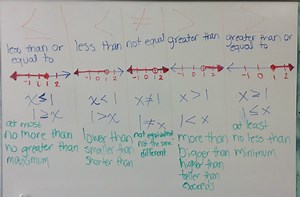 ≤ < ≠ > ≥
less than or equal to
less than
not equal
greater than
greater than or equal to
-1 0 1 2
-1 0 1 2
-1 0 1 2
-1 0 1 2
-1 0 1 2
x ≤ 1
1 ≥ x
x < 1
1 > x
x ≠ 1
1 ≠ x
x > 1
1 < x
x ≥ 1
1 ≤ x
at most
no more than
no greater than
maximum
lower than
smaller than
shorter than
not equivalent
not the same
different
more than
bigger than
higher than
taller than
exceeds
at least
no less than
minimum